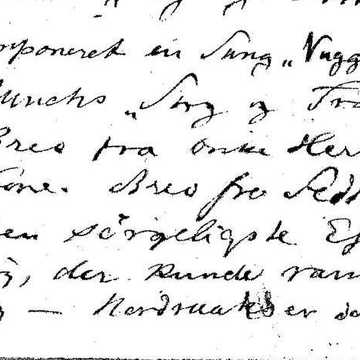 mponeret en Sang „Vugg
Munchs „Sorg og Trø
Brev fra onkel Her
Tone. Brev fra Feds
en sörgeligste Ef
, der kunde ram
— Nordraak er dø